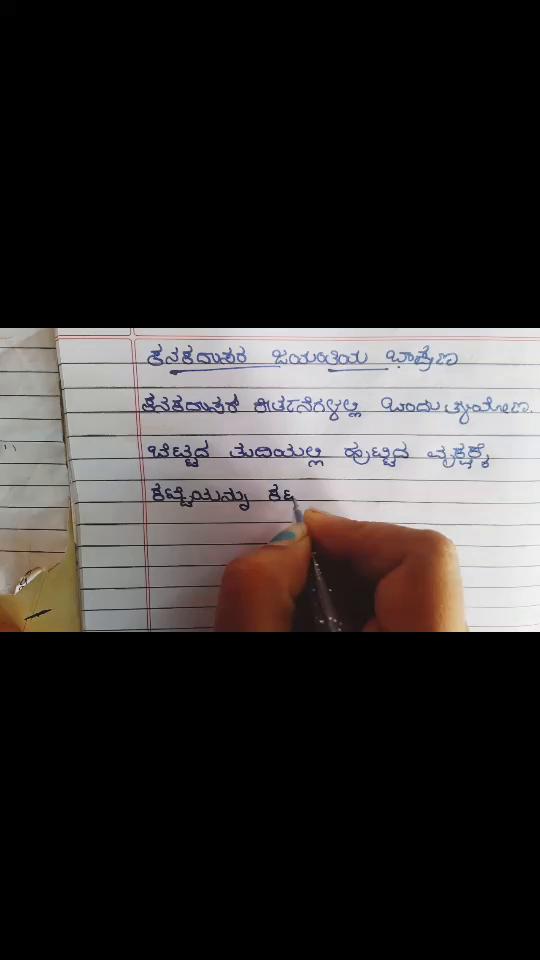 ಕನಕದಾಸರ ಜಯಂತಿಯ ಭಾಷಣ
ಕನಕದಾಸರ ಕೀರ್ತನೆಗಳಲ್ಲಿ ಒಂದು
ಬೆಟ್ಟದ ತುದಿಯಲ್ಲಿ ಹುಟ್ಟಿದ ವೃಕ್ಷಕ್ಕೆ
ಕಟ್ಟೆಯನ್ನು